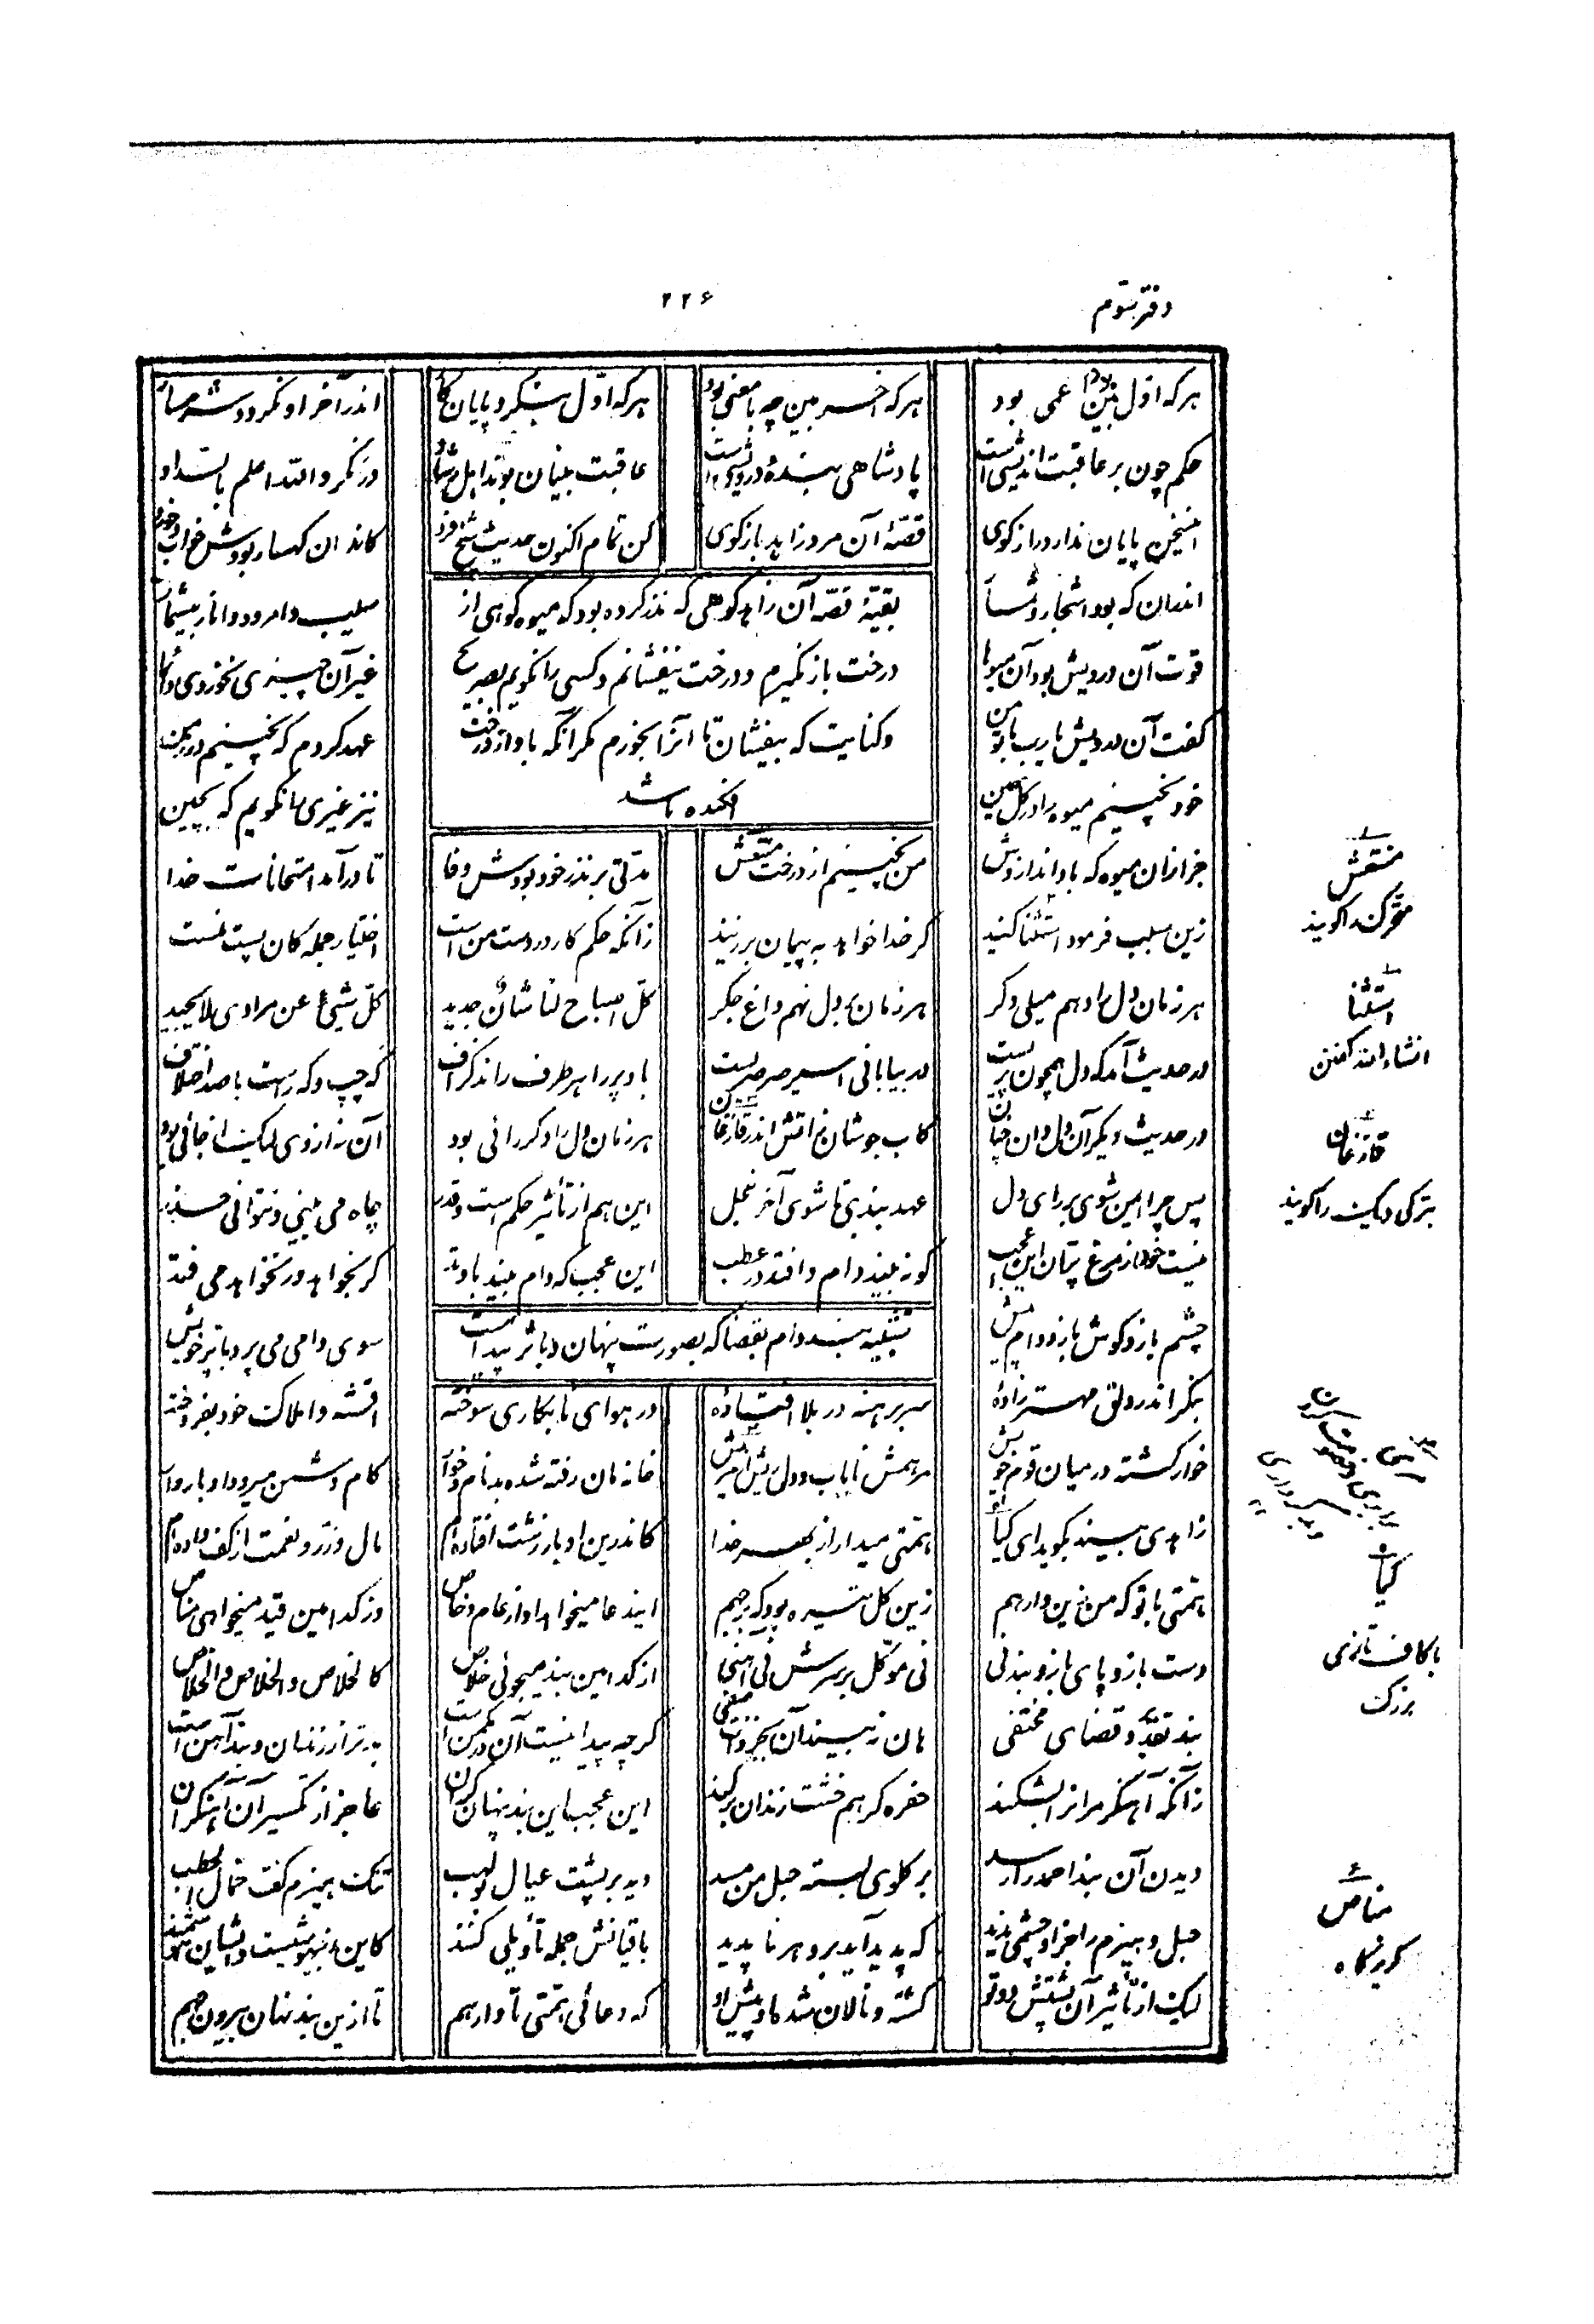 دفتر سوم
۲۲۶
هر که اول بین بود عمی بود هر که آخر بین چه با معنی بود هر که اول بنگرد پایان کار اندر آخر او نگردد شرمسار
حکم چون بر عاقبت اندیشی است پادشاهی بندهٔ درویشی است عاقبت بینان بوند اهل رشاد درنگر والله اعلم بالسداد
این سخن پایان ندارد بازگوی قصهٔ آن مرد زاهد بازگوی کن تمام اکنون حدیث شیخ فرد کاندران کهسار بودش خواب و خورد
بقیهٔ قصه آن زاهد کوهی که نذر کرده بود که میوه کوهی از
درخت باز نگیرم و درخت نیفشانم و کسی را نگویم بصریح
و کنایت که بیفشان تا آنرا بخورم مگر آنکه باد از درخت
افکنده باشد
اندران که بود اشجار و ثمار سیب و امرود و انار بیشمار
قوت آن درویش بود آن میوها غیر آن چیزی نخوردی دائما
گفت آن درویش یا رب با تو من عهد کردم که نچینم در زمن
خود نچینم میوه را در کل حین نیز غیری را نگویم که بچین
جز ازان میوه که باد اندازدش من نچینم از درخت منتعش مدتی بر نذر خود بودش وفا تا درآمد امتحانات خدا
زین سبب فرمود استثنا کنید گر خدا خواهد به پیمان برزنید زانکه حکم کار در دست من است اختیار جمله کان پست منست
هر زمان دل را دهم میلی دگر هر زمان بر دل نهم داغ جگر کل اصباح لنا شأن جدید کل شیئ عن مرادی لا یحید
در حدیث آمد که دل همچون پریست در بیابانی اسیر صرصریست باد پر را هر طرف راند گزاف گه چپ و گه راست با صد اختلاف
در حدیث دیگر آن دل دان چنان کاب جوشان ز اتش اندر قازغان هر زمان دل را دگر رائی بود آن نه از وی لیک از جائی بود
پس چرا ایمن شوی بر رای دل عهد بندی تا شوی آخر خجل این هم از تأثیر حکم است و قدر چاه می بینی و نتوانی حذر
نیست خود از مرغ پران این عجب کو نبیند دام و افتد در عطب این عجب که دام بیند با وتد گر بخواهد ور نخواهد می فتد
تشبیه بند و دام بقضا که بصورت پنهان و باثر پیداست
چشم باز و گوش باز و دام پیش سوی دامی می پرد با پر خویش
بنگر اندر دلق مهترزادهٔ سر برهنه در بلا افتادهٔ در هوای نابکاری سوخته اقمشه و املاک خود بفروخته
خوار گشته در میان قوم خویش مرهمش نایاب و دل ریش خانه مان رفته شده بدنام و خوار کام دشمن میرود ادباروار
زاهدی بیند بگوید ای کیا همتی میدار از بهر خدا کاندرین ادبار زشت افتاده‌ام مال و زر و نعمت از کف داده‌ام
همتی با تو که من زین وارهم زین گل تیره بود که برجهم این دعا میخواهد او از عام و خاص وز کدامین قید میخواهی مناص
دست باز و پای باز و بند نی نی موکل بر سرش نی آهنی از کدامین بند میجوئی خلاص کالخلاص و الخلاص و الخلاص
بند تقدیر و قضای مختفی هان نه بیند آن بجز ذات صفی گرچه پیدا نیست آن در مکمن است بدتر از زندان و بند آهن است
زانکه آهنگر مر آنرا بشکند حفره گر هم خشت زندان برکند این عجب این بند پنهان گران عاجز از تکسیر آن آهنگران
دیدن آن بند احمد را رسد بر گلوی بسته حبل من مسد دید بر پشت عیال بولهب تنگ هیزم گفت حمال الحطب
حبل و هیزم را جز او چشمی ندید که پدید آید برو هر ناپدید باقیانش جمله تأویلی کنند کاین ز بیهوشیست و ایشان هوشمند
لیک از تأثیر آن پشتش دوتو گشته و نالان شده او پیش او که دعائی همتی تا وارهم تا ازین بند نهان بیرون جهم
منتعش
متحرک را گویند
استثنا
انشاء الله گفتن
قازغان
بترکی دیک را گویند
کیا
با کاف تازی
بزرگ
مناص
گریزگاه